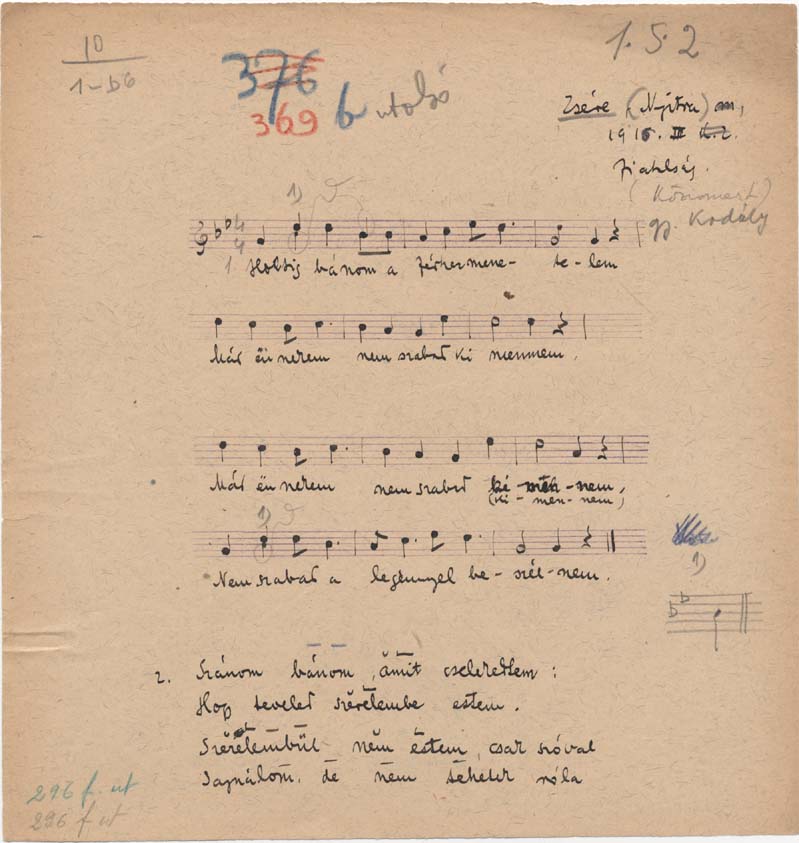 10
1–b6
376
369 b utolsó
1.5.2
Zsére (Nyitra) m,
191
(Közismert)
gy. Kodály
1) 
4
4
1. Holtig bánom a férhermene- te-lem
Már én nekem nem szabad ki mennem.
Már én nekem nem szabad
(ki-men-nem)
1)
Nem szabad a legénnyel be-szél-nem.
1)
2. Szánom bánom, ámit cselekedtem:
Hogy teveled szerelembe estem.
Szerelembül nem estem, csak szóval
Sajnálom, de nem tehetek róla
296 f. ut
296 f ut